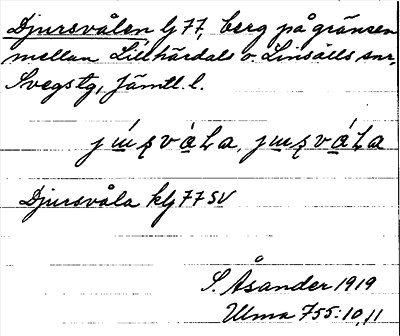 Djursvålen lj 77, berg på gränsen
mellan Lillhärdals o. Linsälls snr,
Svegs tg, Jämtl. l.
Djursvåla klj 77 SV
S. Åsander 1919
Ulma 755:10,11